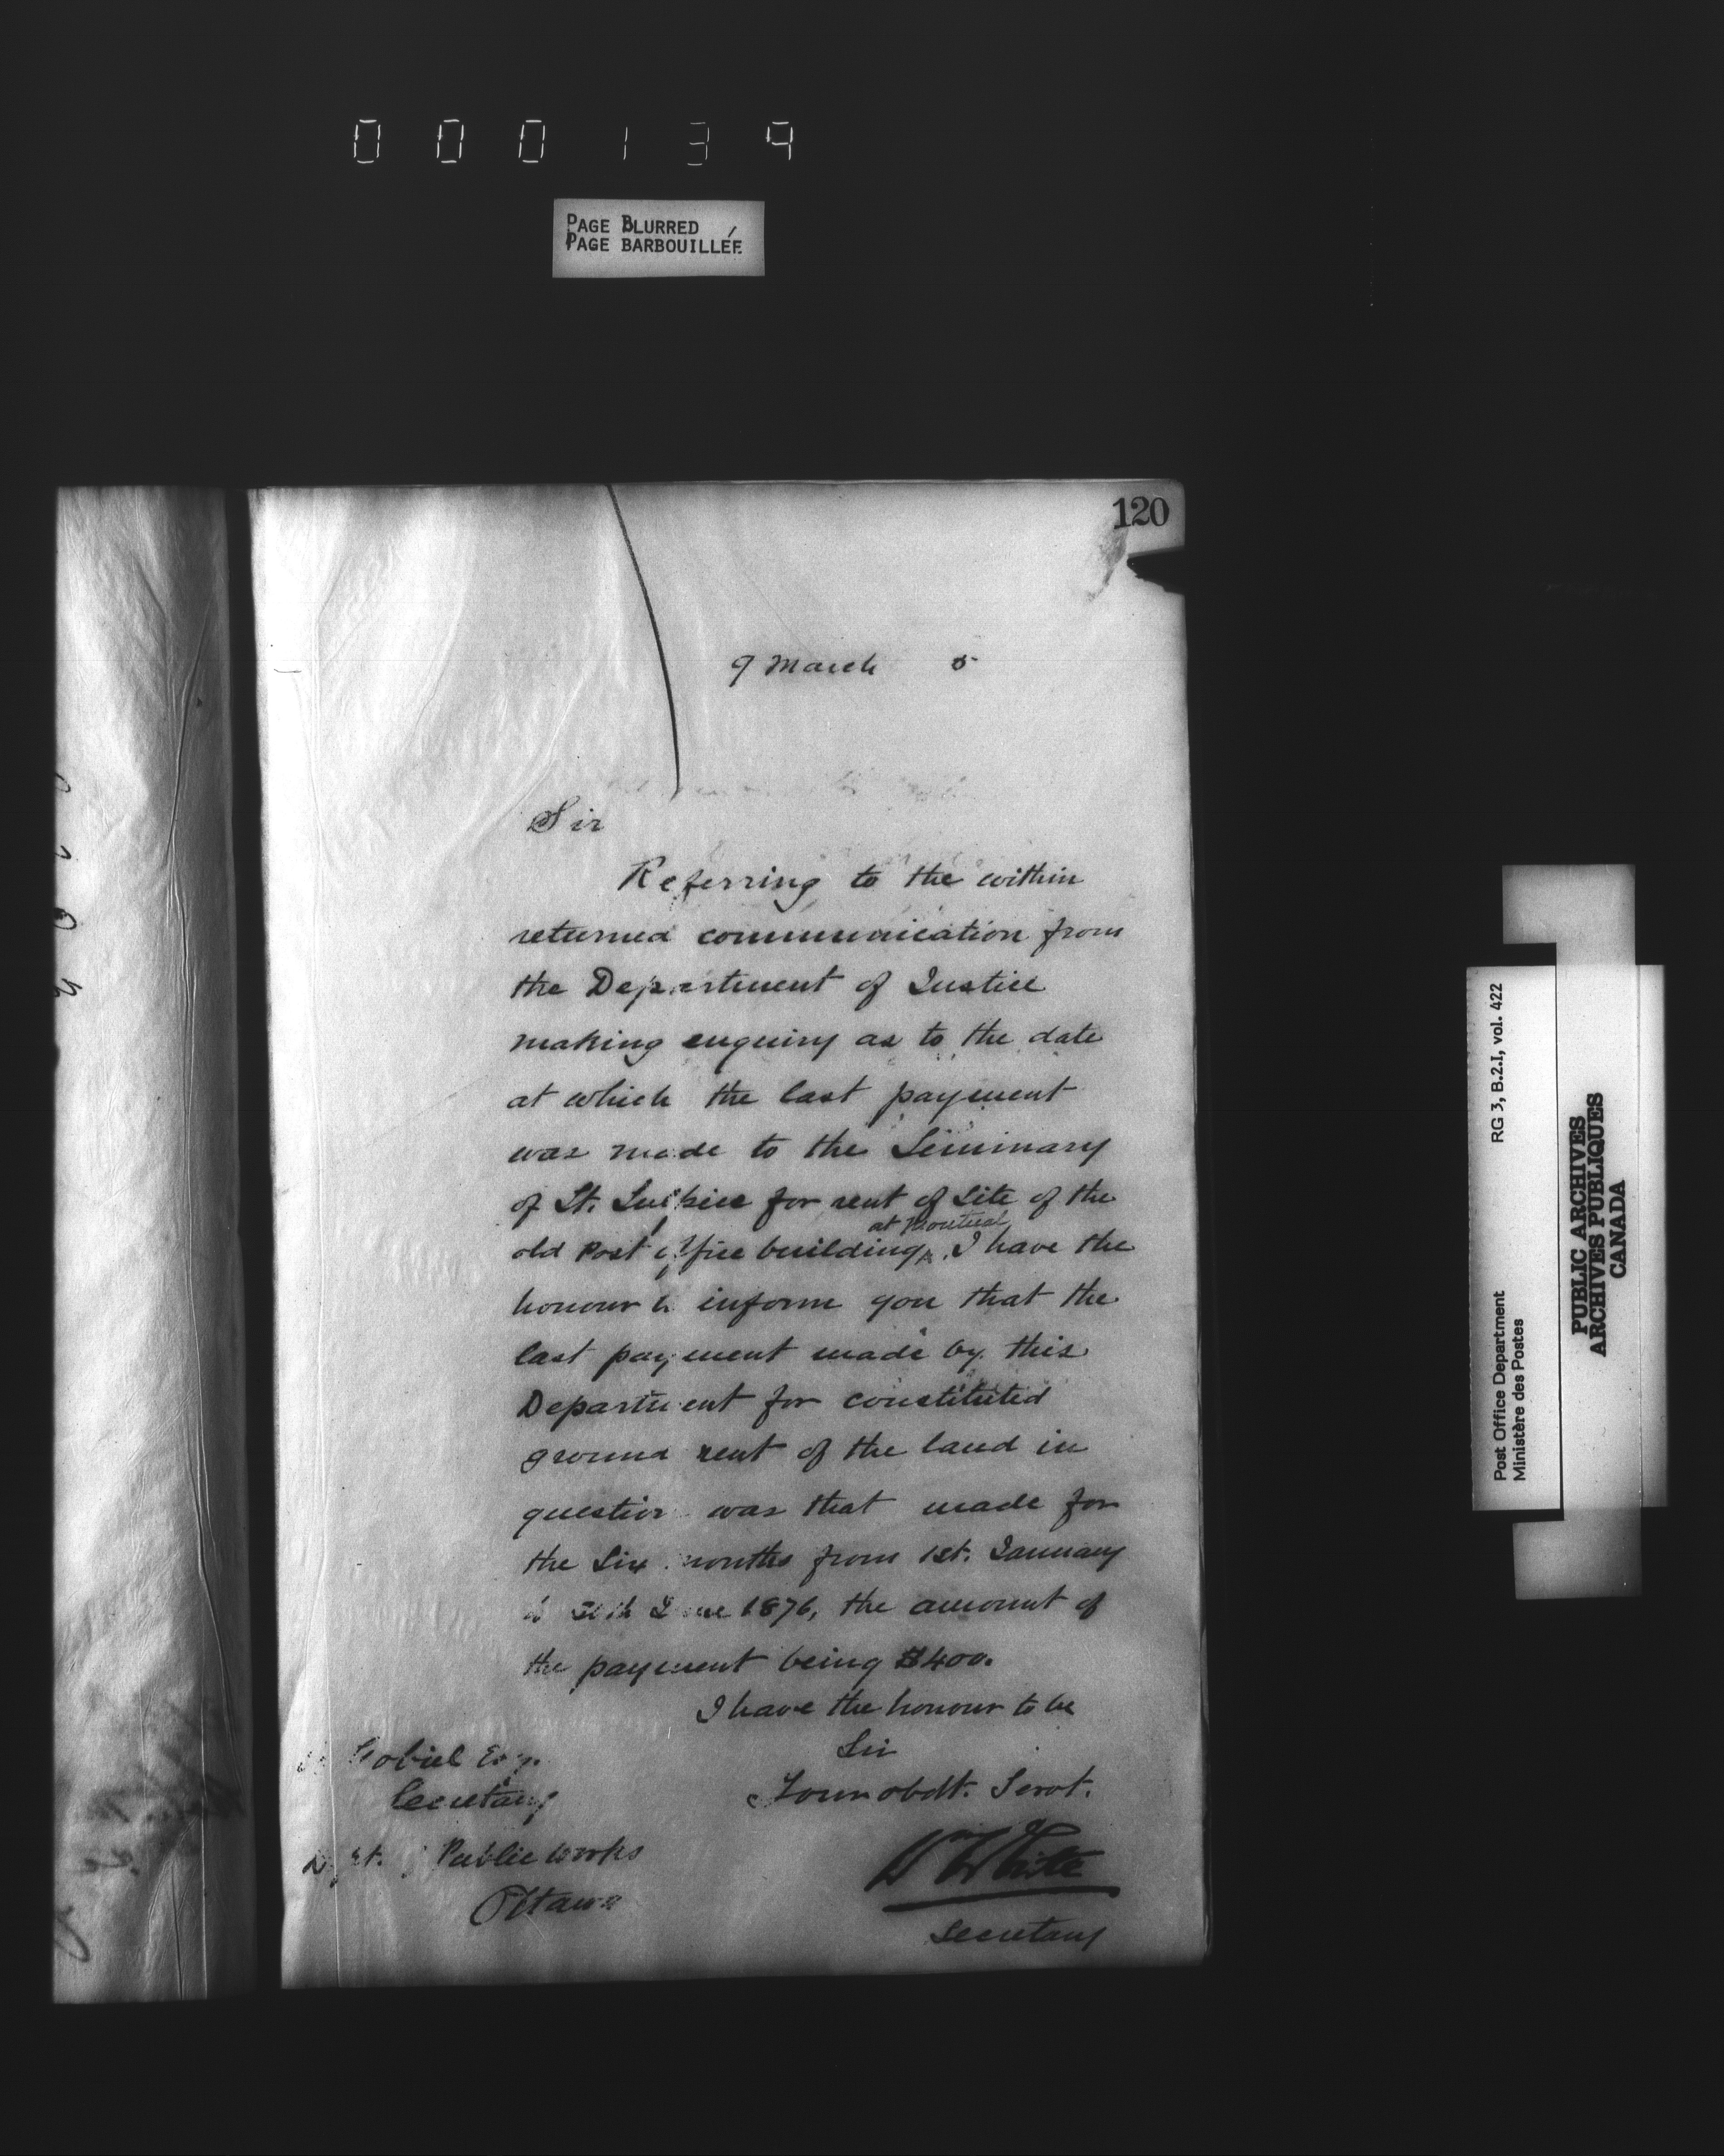 000139
PAGE BLURRED
PAGE BARBOUILLÉE
120
9 March 5
Sir
Referring to the within
returned communication from
the Department of Justice
making enquiry as to the date
at which the last payment
was made to the Seminary
of St. Sulpice for rent of site of the
at Montreal
old Post Office building, I have the
honour to inform you that the
last payment made by this
Department for constituted
ground rent of the land in
question was that made for
the Six months from 1st. January
to 30th June 1876, the amount of
the payment being $400.
I have the honour to be
Sir
Your obdt. Servt.
Wm White
Secretary
Gobiel Esq.
Secretary
Dept. of Public Works
Ottawa
Post Office Department RG 3, B.2.I, vol. 422
Ministère des Postes
PUBLIC ARCHIVES
ARCHIVES PUBLIQUES
CANADA